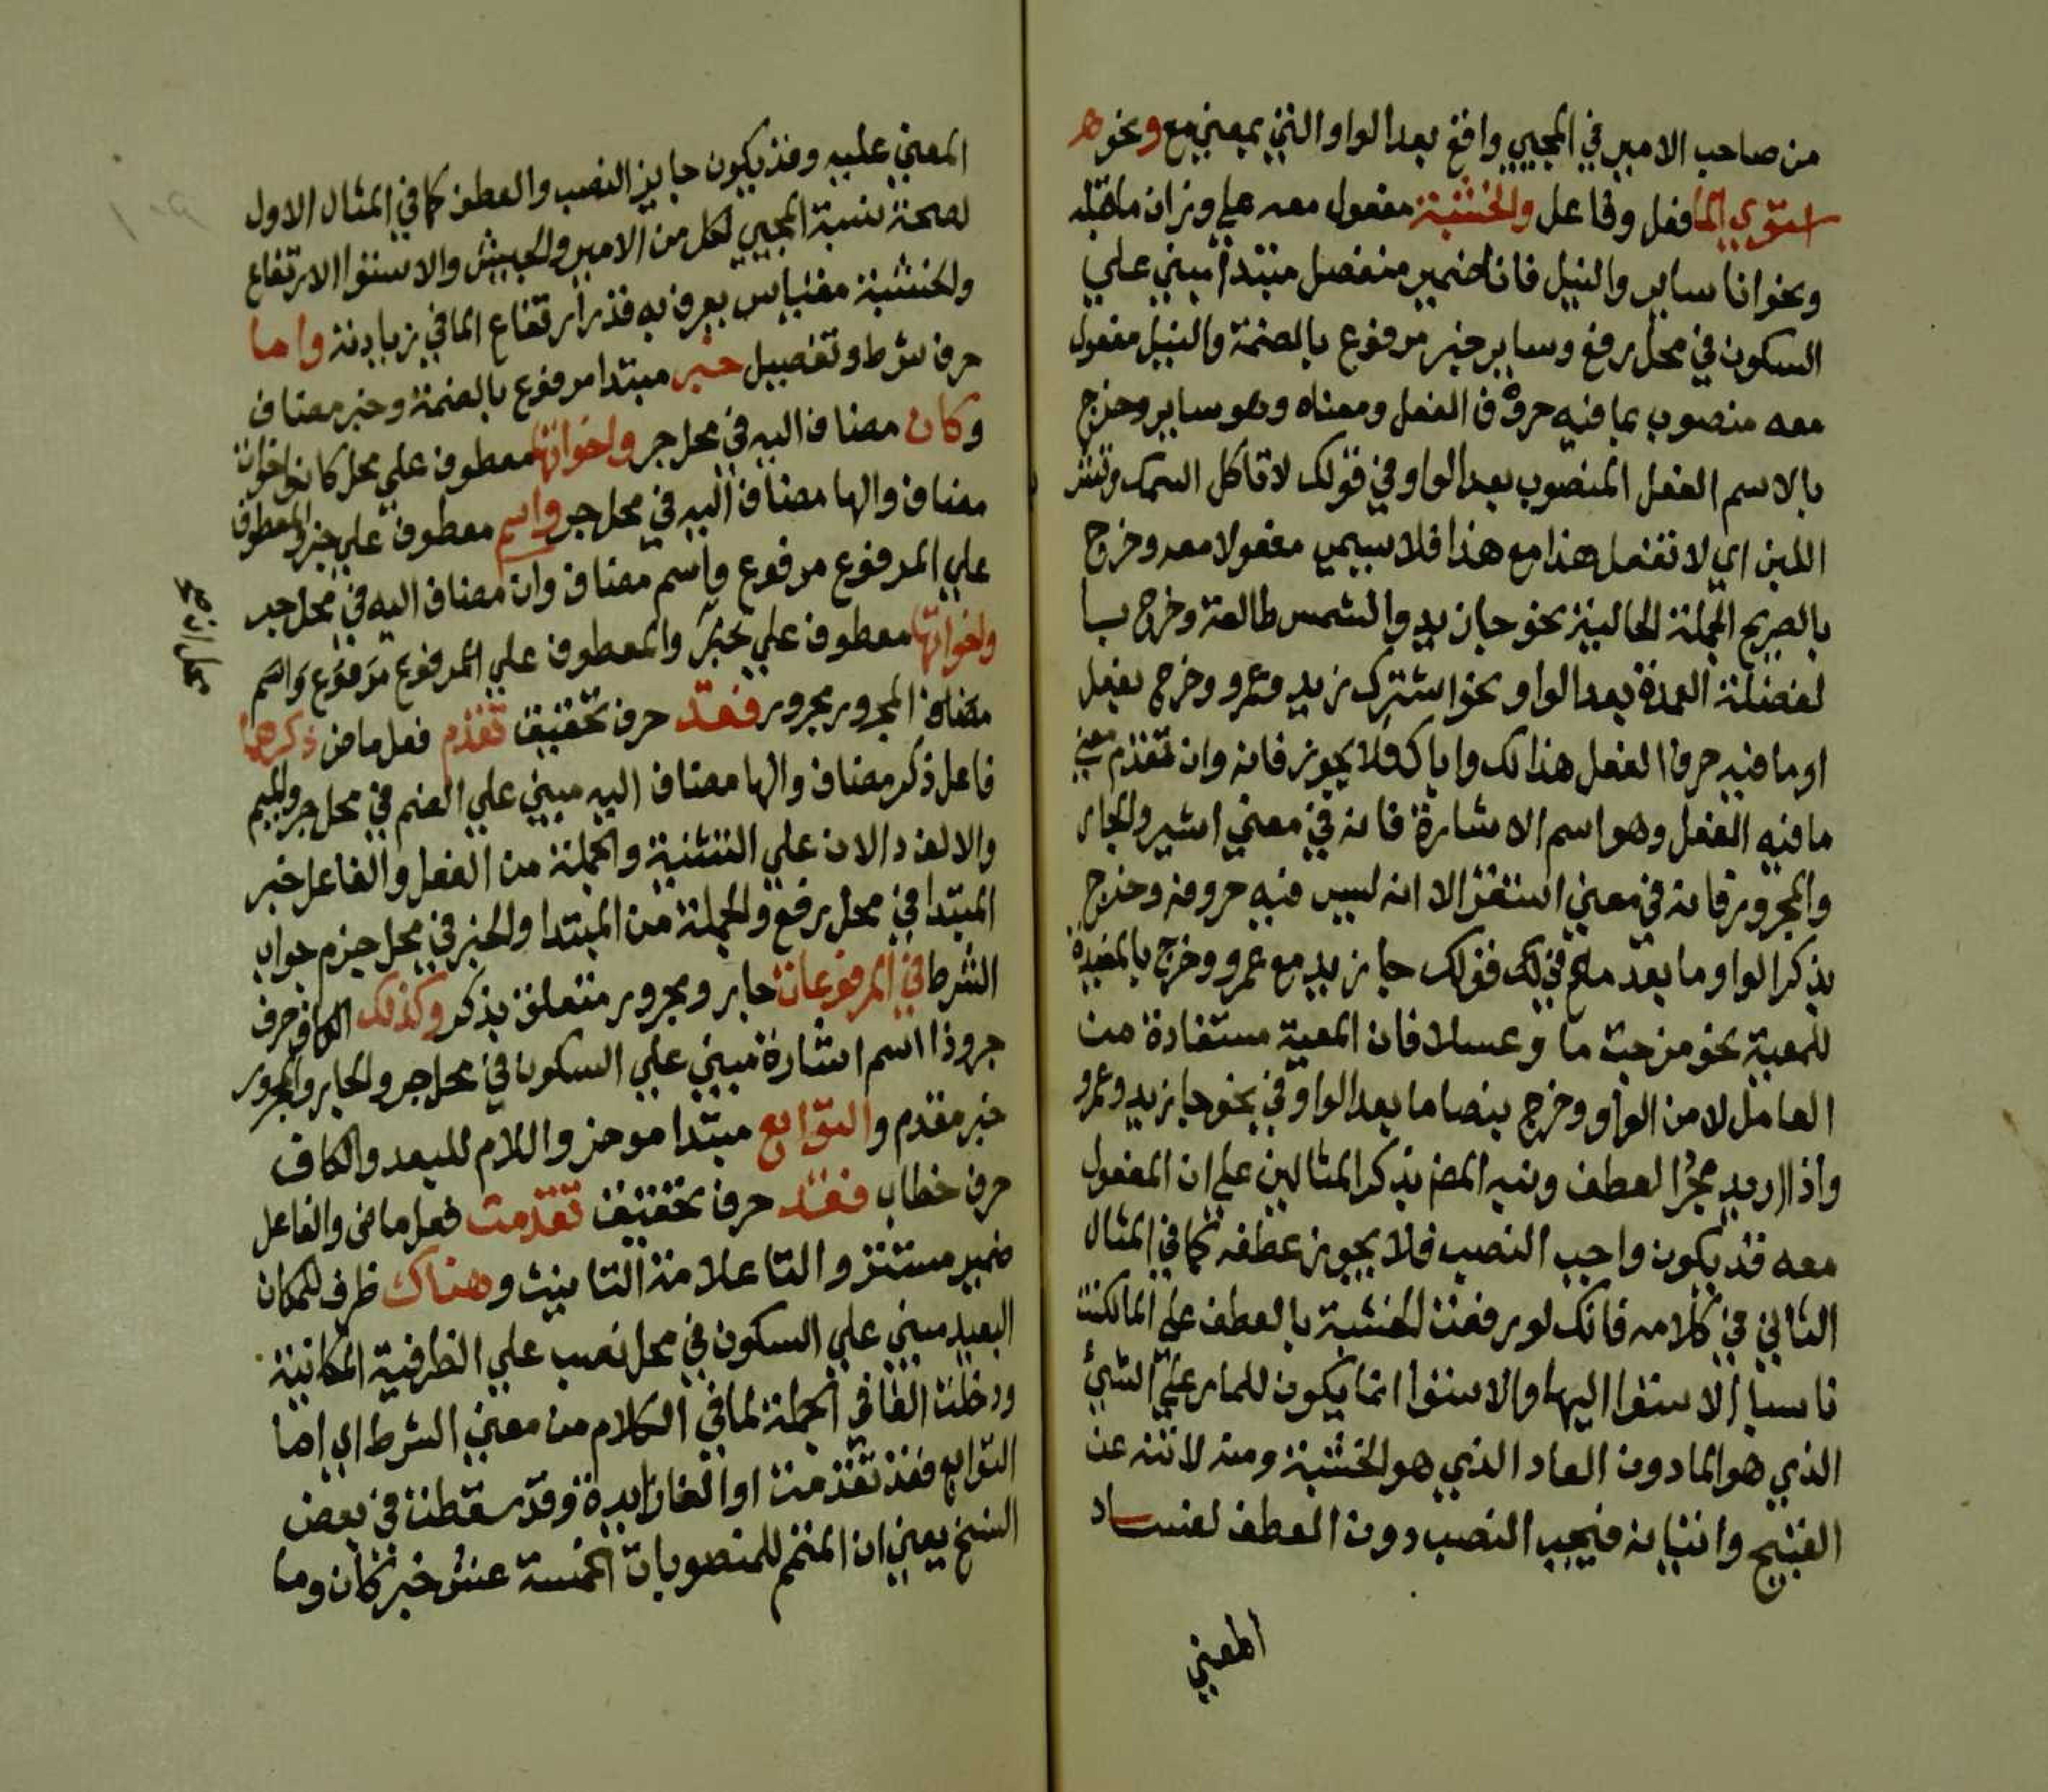 من صاحب الامير في المجيي واقع بعد الواو التي بمعني مع ونحو
استوي الما فعل وفاعل والخشبة مفعول معه علي وزان ما قبله
ونحو انا ساير والنيل فانا ضمير منفصل مبتدا مبني علي
السكون في محل رفع وساير خبر مرفوع بالضمة والنيل مفعول
معه منصوب بما فيه حروف الفعل ومعناه وهو ساير وخرج
بالاسم الفعل المنصوب بعد الواو في قولك لا تاكل السمك وتشرب
اللبن اي لا تفعل هذا مع هذا فلا يسمي مفعولا معه وخرج
بالصريح الجملة الحالية نحو جا زيد والشمس طالعة وخرج با
لفضلة العمدة بعد الواو نحو اشترك زيد وعمرو وخرج بفعل
او ما فيه حرف الفعل هذا لك واباك فلا يجوز فانه وان تقدم معني
ما فيه الفعل وهو اسم الاشارة فانه في معني اشير والجار
والمجرور فانه في معني استقر الا انه ليس فيه حروفه وخرج
بذكر الواو ما بعد مع في قولك جا زيد مع عمرو وخرج بالمفيدة
للمعية نحو مزجت ما وعسلا فان المعية مستفادة من
العامل لا من الواو وخرج بنصا ما بعد الواو في نحو جا زيد وعمرو
واذا اريد مجرد العطف ونبه المص بذكر المثالين علي ان المفعول
معه قد يكون واجب النصب فلا يجوز عطفه كما في المثال
الثاني في كلامه فانك لو رفعت الخشبة بالعطف علي الما لكنت
ناسبا الاستوا اليها والاستوا انما يكون للمار علي الشي
الذي هو الما دون القار الذي هو الخشبة ومنه لا تنه عن
القبيح واتيانه فيجب النصب دون العطف لفساد
المعني
المعني عليه وقد يكون جايز النصب والعطف كما في المثال الاول
لصحة نسبة المجيي لكل من الامير والجيش والاستوا الارتفاع
والخشبة مقياس يعرف به قدر ارتفاع الما في زيادته واما
حرف شرط وتفصيل خبر مبتدا مرفوع بالضمة وخبر مضاف
وكان مضاف اليه في محل جر واخواتها معطوف علي محل كان واخوات
مضاف والها مضاف اليه في محل جر واسم معطوف علي خبر والمعطوف
علي المرفوع مرفوع واسم مضاف وان مضاف اليه في محل جر
واخواتها معطوف علي خبر والمعطوف علي المرفوع مرفوع واسم
مضاف المجرور مجرور فقد حرف تحقيق تقدم فعل ماض ذكرهما
فاعل ذكر مضاف والها مضاف اليه مبني علي الضم في محل جر والميم
والالف دالان علي التثنية والجملة من الفعل والفاعل خبر
المبتدا في محل رفع والجملة من المبتدا والخبر في محل جزم جواب
الشرط في المرفوعات جار ومجرور متعلق بذكر وكذلك الكاف حرف
جر وذا اسم اشارة مبني علي السكون في محل جر والجار والمجرور
خبر مقدم والتوابع مبتدا موخر واللام للبعد والكاف
حرف خطاب فقد حرف تحقيق تقدمت فعل ماض والفاعل
ضمير مستتر والتا علامة التانيث وهناك ظرف للمكان
البعيد مبني علي السكون في محل نصب علي الظرفية المكانية
ودخلت الفا في الجملة لما في الكلام من معني الشرط اي اما
التوابع فقد تقدمت او الفا زايدة وقد سقطت في بعض
النسخ يعني ان المتمم للمنصوبات الخمسة عشر خبر كان وما